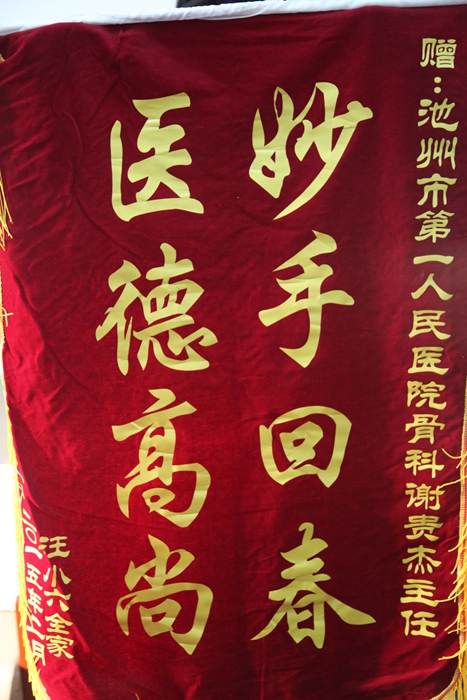 赠:池州市第一人民医院骨科谢贵杰主任
妙手回春
医德高尚
汪小六全家
二〇一五年二月